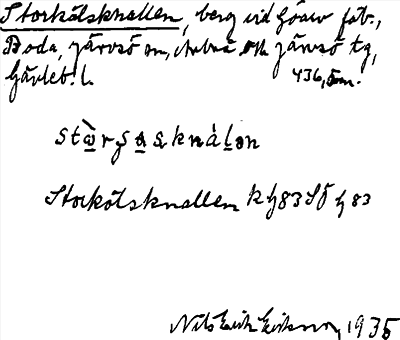 Storkölsknallen, berg vid Gåsw fäb.,
Boda, Järvsö sn, Arbrå o. Järvsö tg,
Gävleb. l. 436,5 m.
Storkölsknallen K h 83 SÖ h 83
Nils Erik Eriksson 1935